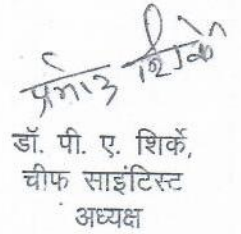 डॉ. पी. ए. शिर्के,
चीफ साइंटिस्ट
अध्यक्ष